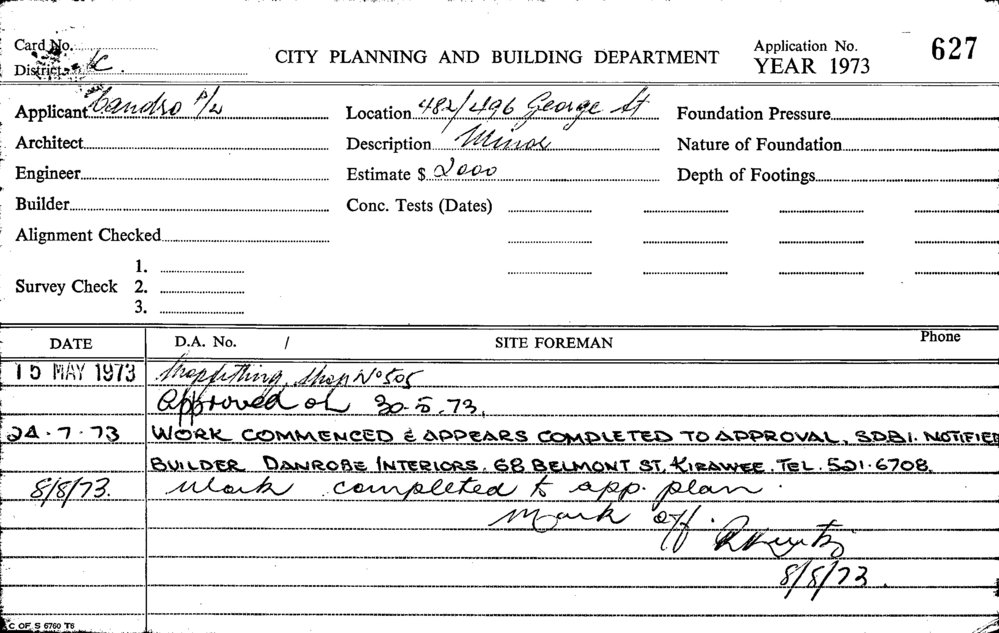 Card No.
District C.
CITY PLANNING AND BUILDING DEPARTMENT
Application No. 627
YEAR 1973
Applicant Candso P/L
Location 482/496 George St
Foundation Pressure
Architect
Description Minor
Nature of Foundation
Engineer
Estimate $ 2000
Depth of Footings
Builder
Conc. Tests (Dates)
Alignment Checked
Survey Check
1.
2.
3.
DATE
D.A. No. /
SITE FOREMAN
Phone
15 MAY 1973 Shopfitting, Shop No 505
Approved on 30.5.73.
24.7.73 WORK COMMENCED & APPEARS COMPLETED TO APPROVAL. SDBI. NOTIFIED
BUILDER DANROBE INTERIORS. 68 BELMONT ST. KIRAWEE. TEL. 521.6708.
8/8/73. Work completed to app. plan.
Mark off.
8/8/73.
C OF S 6760 T6